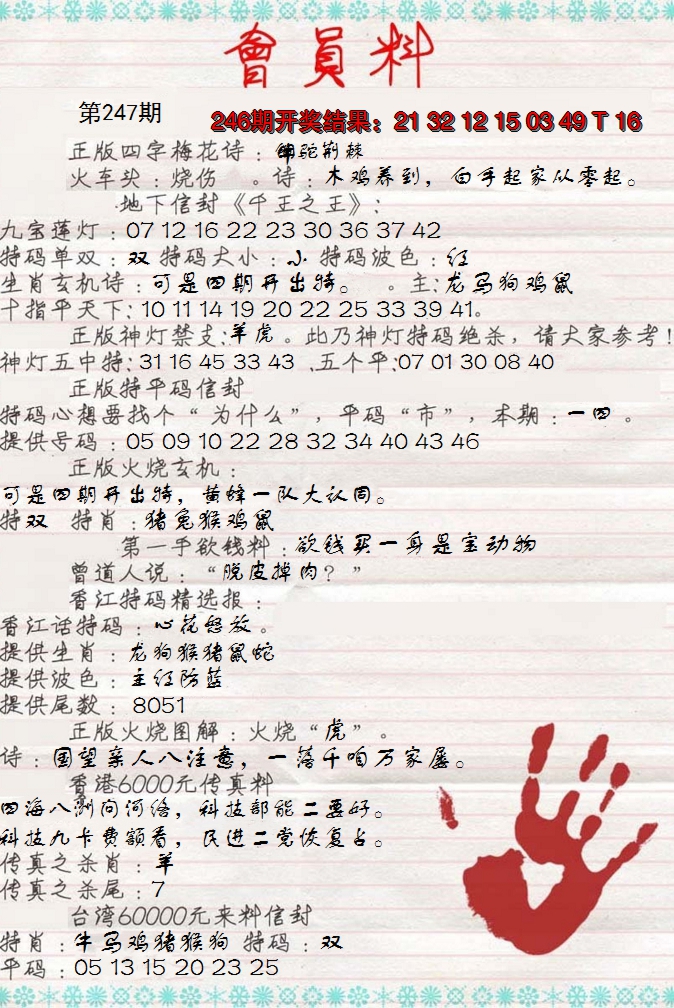 會員料
第247期
246期开奖结果：21 32 12 15 03 49 T 16
正版四字梅花诗：驼荆棘
火车头：烧伤 。诗：木鸡养到，白手起家从零起。
地下信封《千王之王》：
九宝莲灯：07 12 16 22 23 30 36 37 42
特码单双：双 特码大小：小 特码波色：红
生肖玄机诗：可是四期开出特。 。主：龙马狗鸡鼠
十指平天下：10 11 14 19 20 22 25 33 39 41。
正版神灯禁支：羊虎。此乃神灯特码绝杀，请大家参考！
神灯五中特：31 16 45 33 43 .五个平：07 01 30 08 40
正版特平码信封
特码心想要找个“为什么”，平码“市”，本期：一四。
提供号码：05 09 10 22 28 32 34 40 43 46
正版火烧玄机：
可是四期开出特，黄蜂一队大认同。
特双 特肖：猪兔猴鸡鼠
第一手欲钱料：欲钱买一身是宝动物
曾道人说：“脱皮掉肉？”
香江特码精选报：
香江话特码：心花怒放。
提供生肖：龙狗猴猪鼠蛇
提供波色：主红防蓝
提供尾数：8051
正版火烧图解：火烧“虎”。
诗：国望亲人八注意，一落千咱万家屡。
香港6000元传真料
四海八洲问河络，科技部能二要好。
科技九卡费额看，民进二党恢复占。
传真之杀肖：羊
传真之杀尾：7
台湾60000元来料信封
特肖：牛马鸡猪猴狗 特码：双
平码：05 13 15 20 23 25